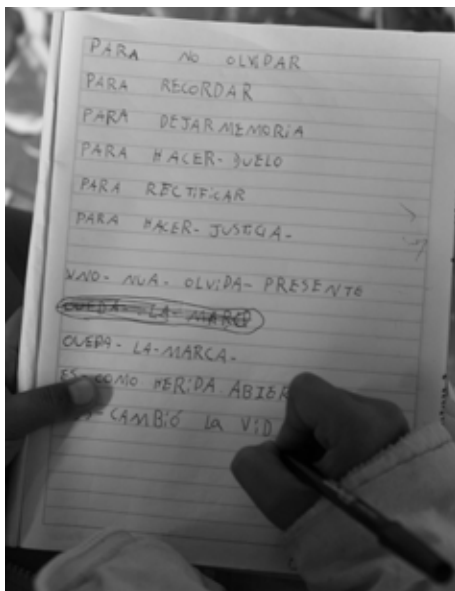 PARA NO OLVIDAR
PARA RECORDAR
PARA DEJAR MEMORIA
PARA HACER- DUELO
PARA RECTIFICAR
PARA HACER- JUSTICIA-
UNO- NUA- OLVIDA- PRESENTE
QUEDA- LA- MARCA
QUEDA- LA-MARCA-
ES- COMO HERIDA ABIER
CAMBIÓ LA VID